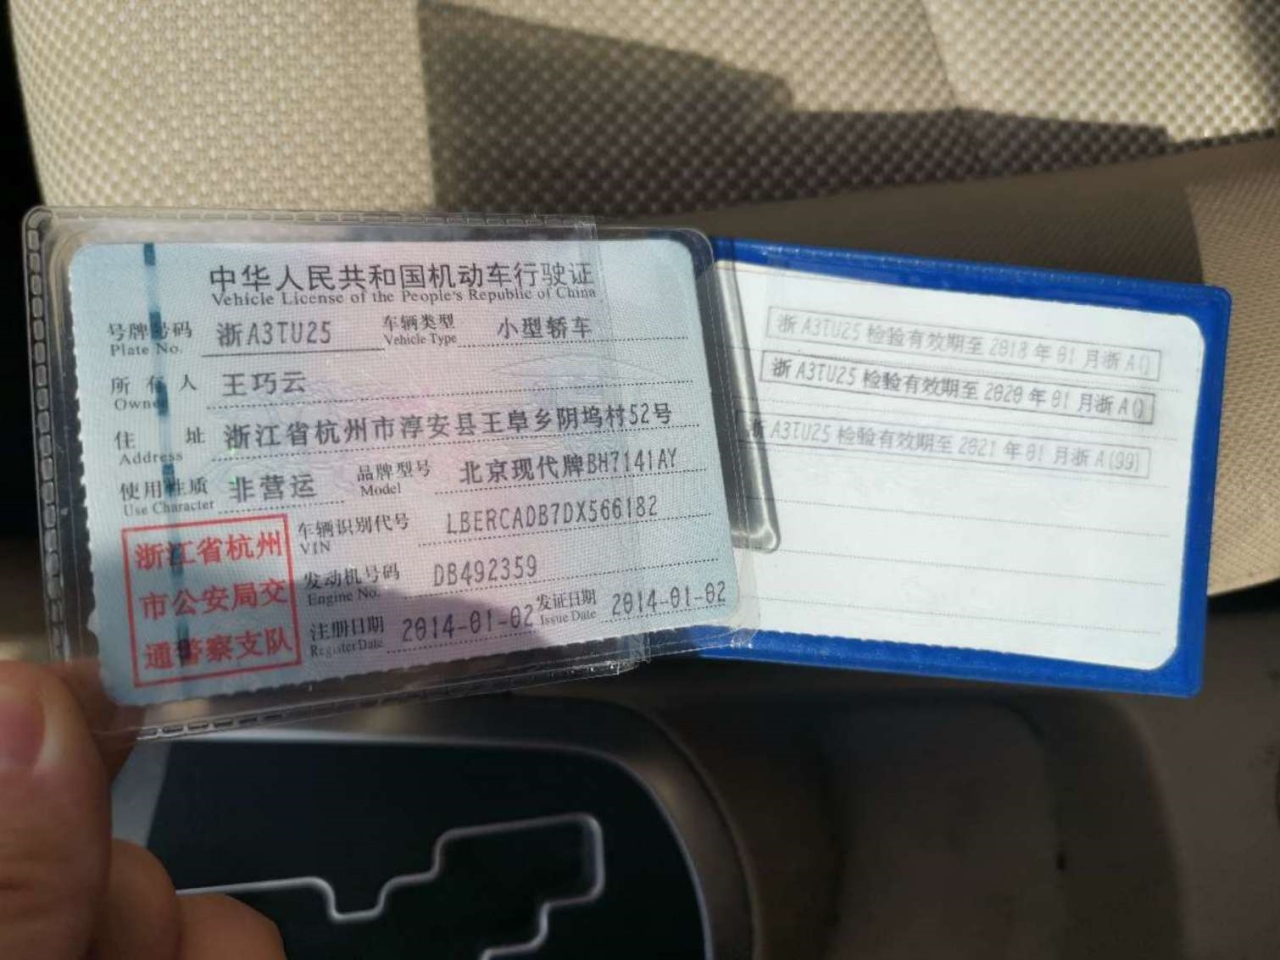 中华人民共和国机动车行驶证
Vehicle License of the People's Republic of China
号牌号码 浙A3TU25 车辆类型 小型轿车
Plate No. Vehicle Type
所有人 王巧云
Owner
住址 浙江省杭州市淳安县王阜乡阴坞村52号
Address
使用性质 非营运 品牌型号 北京现代牌BH7141AY
Use Character Model
浙江省杭州
市公安局交
通警察支队
车辆识别代号 LBERCADB7DX566182
VIN
发动机号码 DB492359
Engine No.
注册日期 2014-01-02 发证日期 2014-01-02
Register Date Issue Date
浙A3TU25 检验有效期至 2018 年 01 月浙A()
浙A3TU25 检验有效期至 2020 年 01 月浙A()
浙A3TU25 检验有效期至 2021 年 01 月浙A(99)